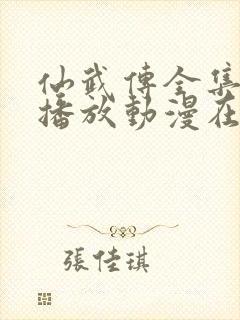 仙武傳全集
播放動漫在
張佳琪